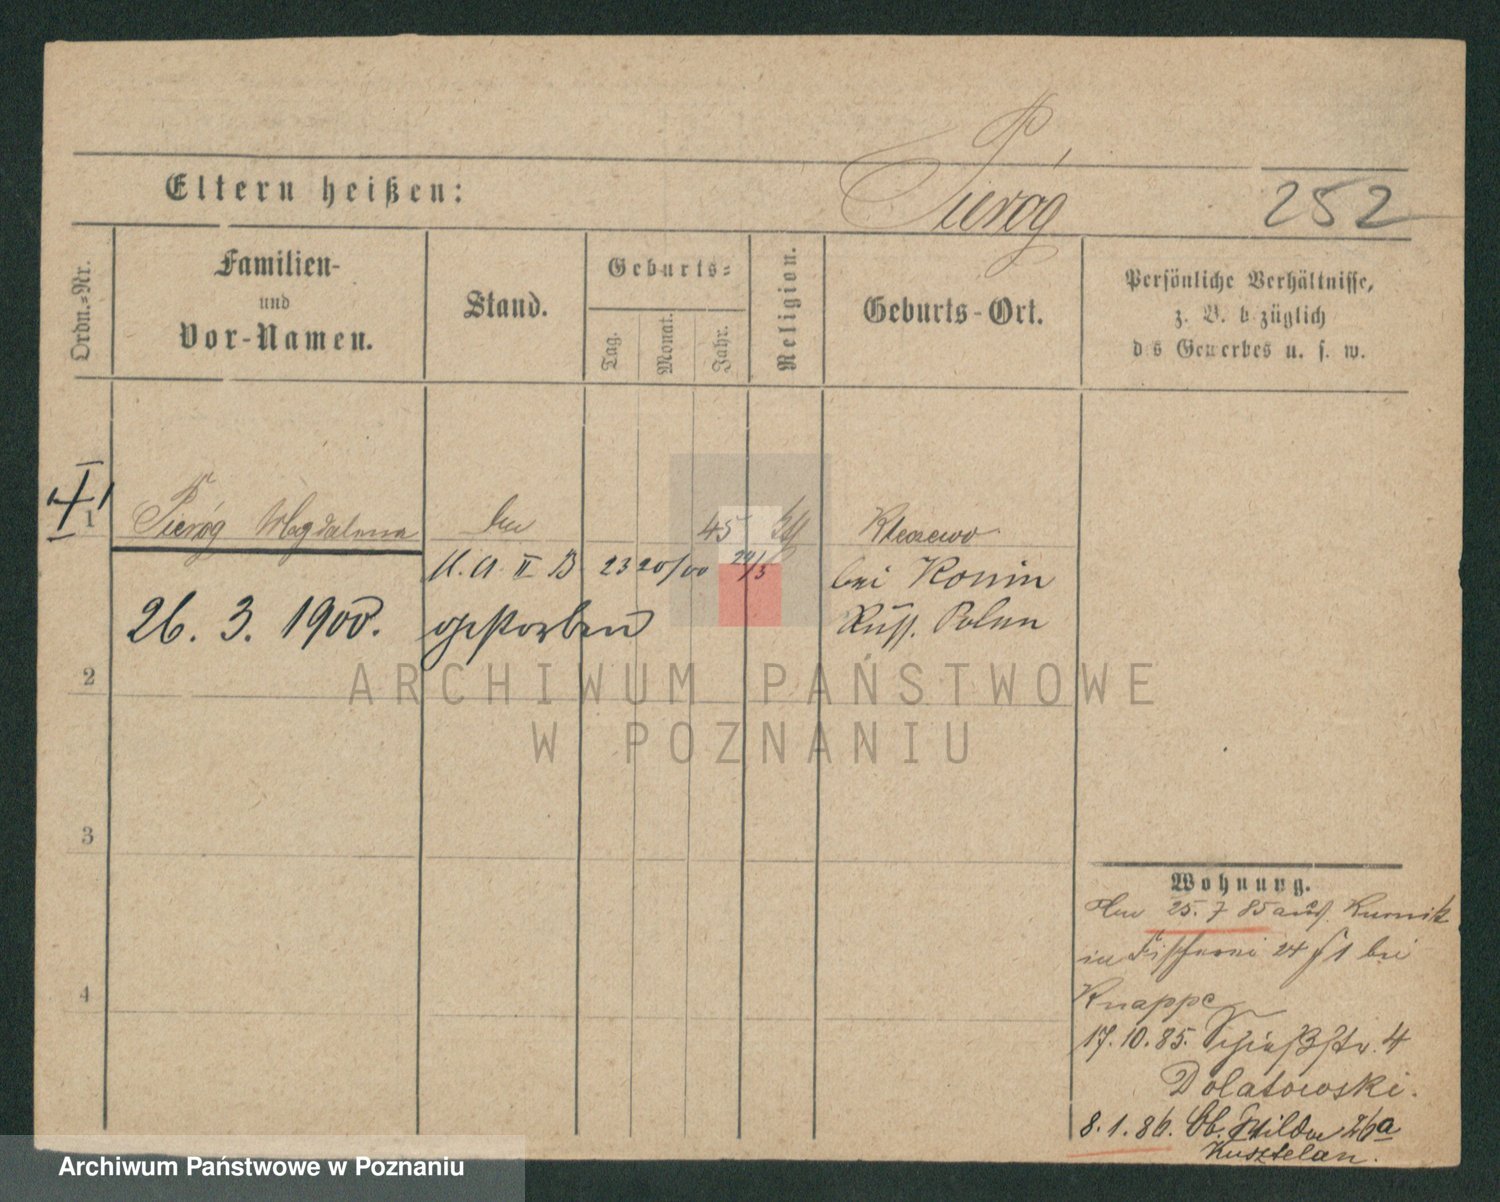 Pieróg
Eltern heißen:
252
Ordn.-Nr.
Familien-
und
Vor-Namen.
Stand.
Geburts-
Tag.
Monat.
Jahr.
Religion.
Geburts-Ort.
Persönliche Verhältnisse,
z. B. bezüglich
des Gewerbes u. s. w.
1
Pieróg Magdalena
45
Kleczewo
U. A. II B 23 20/00 24/3
bei Konin
26. 3. 1900. gestorben
Russ. Polen
2
ARCHIWUM PAŃSTWOWE
W POZNANIU
3
4
Wohnung.
25. 7 85 aus Kurnik
in Fischerei 24 bei
Knappe
17. 10. 85. Schießstr. 4
Dolatowski.
8. 1. 86. Ob. Wilda 26a
Kusztelan.
Archiwum Państwowe w Poznaniu